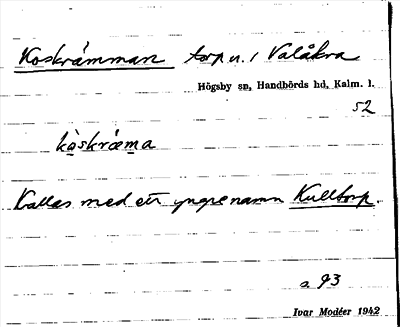 Koskrämman torp u. Valåkra
Högsby sn, Handbörds hd, Kalm. l.
52
kòskræma
Kallas med ett yngre namn Kulltorp.
a 93
Ivar Modéer 1942